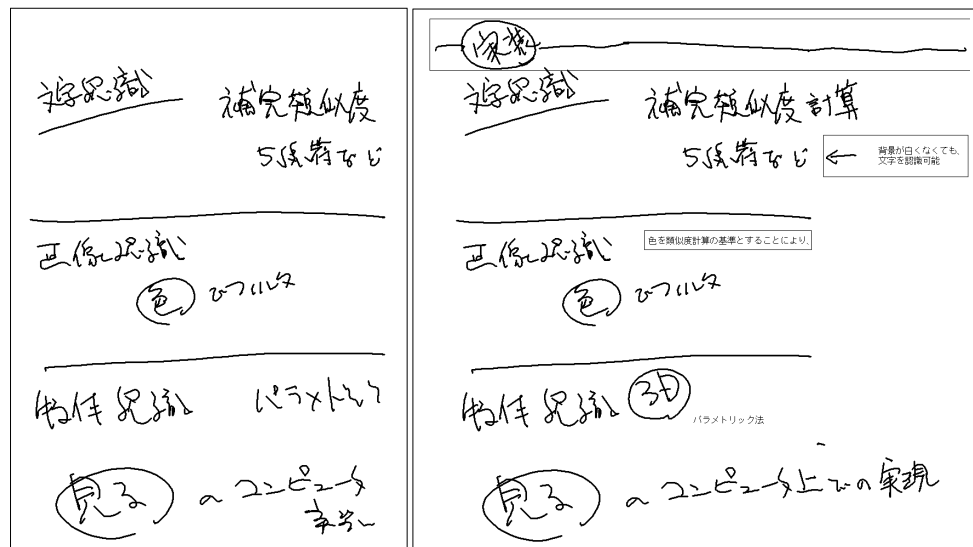 文字認識
補完類似度
など
画像認識
色 でフィルタ
物体認識 パラメトリック
見る のコンピュータ
文字認識
補完類似度計算
など
背景が白くなくても、
文字を認識可能
画像認識
色を類似度計算の基準とすることにより、
色 でフィルタ
物体認識 3D
パラメトリック法
見る のコンピュータ上での実現